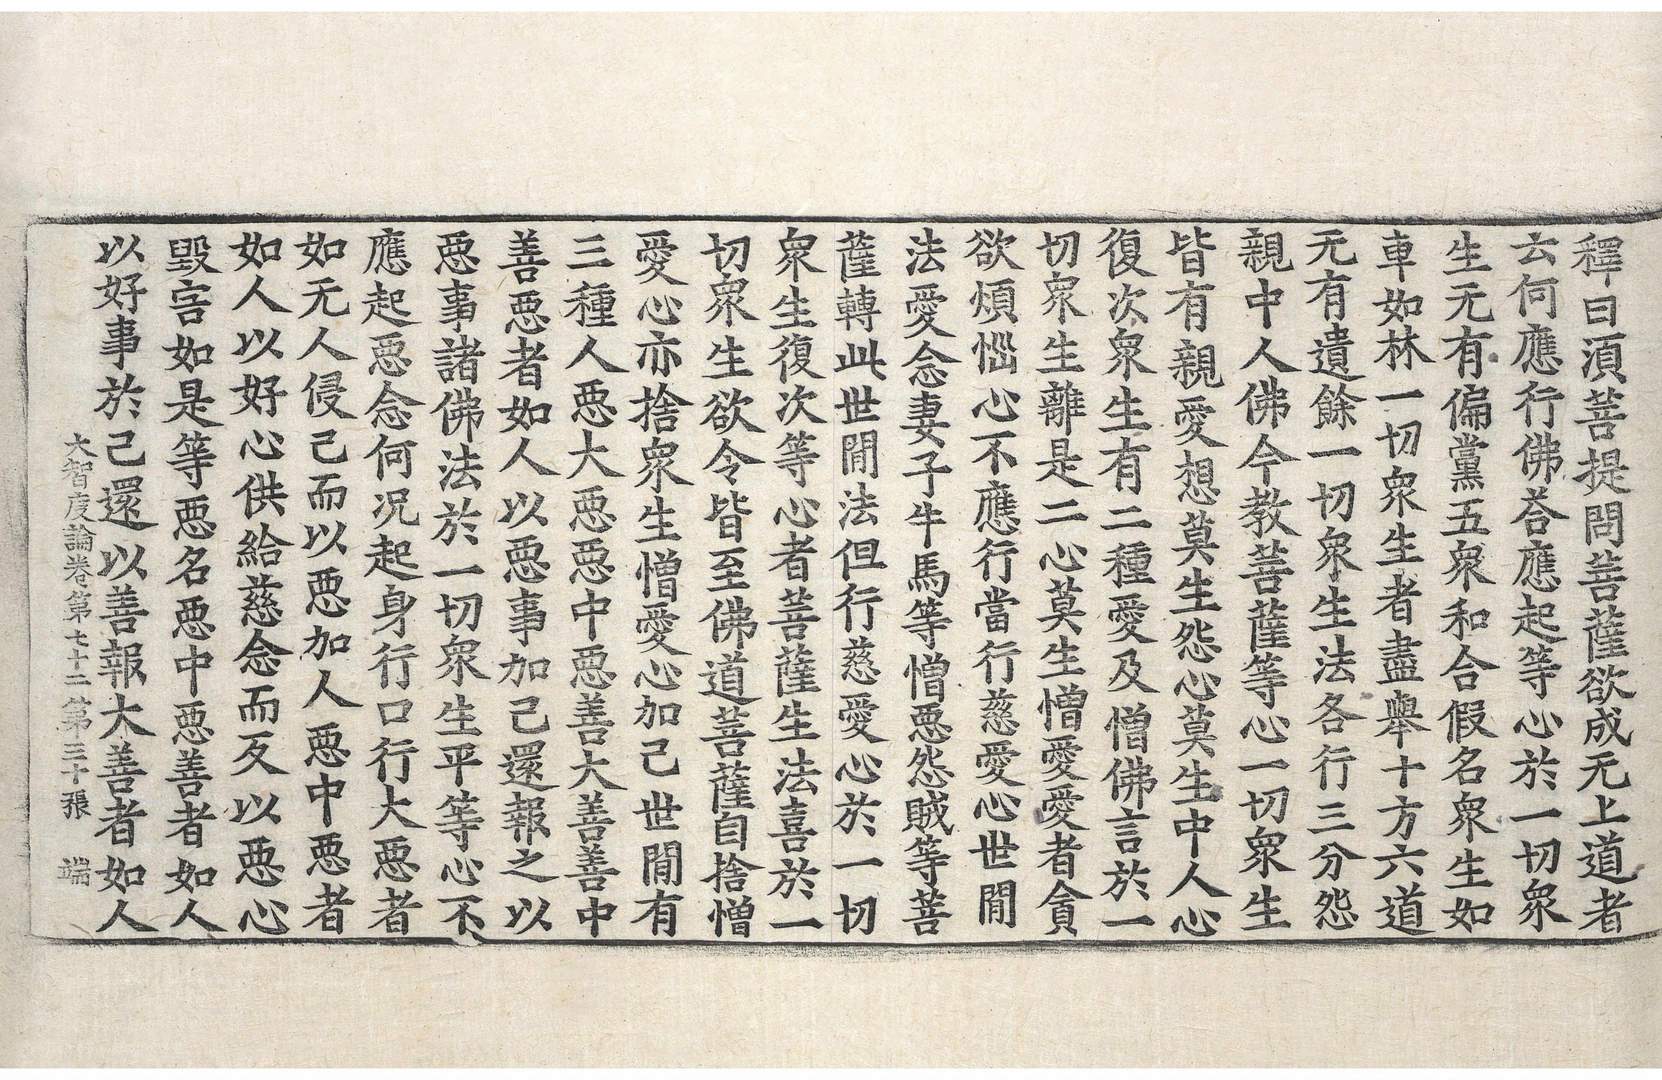 釋曰湏菩提問菩薩欲成无上道者
云何應行佛荅應起等心於一切衆
生无有偏黨五衆和合假名衆生如
車如林一切衆生者盡舉十方六道
无有遺餘一切衆生法各行三分怨
親中人佛今教菩薩等心一切衆生
皆有親愛想莫生怨心莫生中人心
復次衆生有二種愛及憎佛言於一
切衆生離是二心莫生憎愛愛者貪
欲煩惱心不應行當行慈愛心世間
法愛念妻子牛馬等憎惡怨賊等菩
薩轉此世間法但行慈愛心於一切
衆生復次等心者菩薩生法喜於一
切衆生欲令皆至佛道菩薩自捨憎
愛心亦捨衆生憎愛心加己世間有
三種人惡大惡惡中惡善大善善中
善惡者如人以惡事加己還報之以
惡事諸佛法於一切衆生平等心不
應起惡念何况起身行口行大惡者
如无人侵己而以惡加人惡中惡者
如人以好心供給慈念而反以惡心
毀害如是等惡名惡中惡善者如人
以好事於己還以善報大善者如人
大智度論卷第七十二第三十張 端